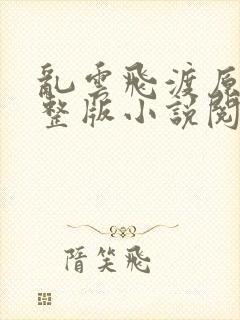 亂雲飛渡原
整版小說閱
隋笑飛